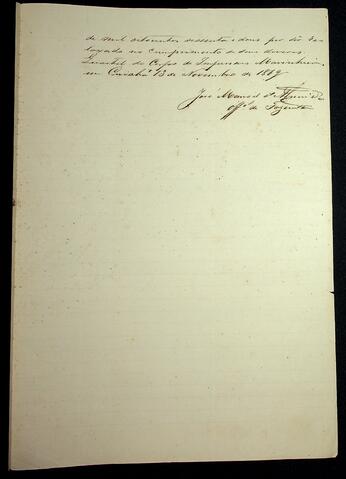 de mil oitocentos sessenta e dous por ser re
laxado no cumprimento de seus deveres.
Quartel do Corpo de Imperiaes Marinheiros
em Cuiabá 13 de Novembro de 1862
José Manoel d'
Offal de Fazenda